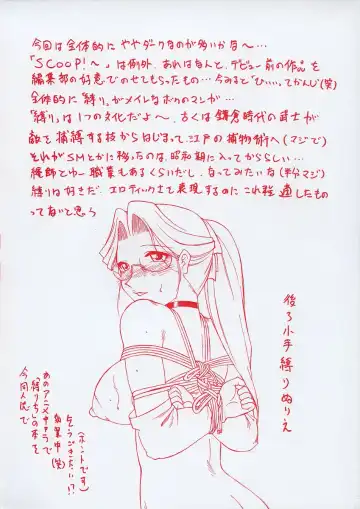 今回は全体的にややダークなのが多いかな〜…
「SCOOP!〜」は例外、あれはなんと、デビュー前の作品を
編集部の好意でのせてもらったもの…今みると「ひぃぃ」てかんじ(笑)
全体的に「縛り」がメインなボクのマンガ…
「縛り」は1つの文化だよ〜、古くは鎌倉時代の武士が
敵を捕縛する技からはじまって江戸の捕物術へ(マジで)
それがSMとかに移ったのは、昭和期に入ってかららしい…
縄師とゆー職業もあるくらいだし、なってみたいな(半分マジ)
縛りは好きだ、エロティックさを表現するのにこれ程適したもの
ってないと思う
後ろ小手縛りぬりえ
(ホントです)
乞うごきたい!?
負業中(笑)
あのアニメキャラで
「縛りもの」の本を
今同人誌で